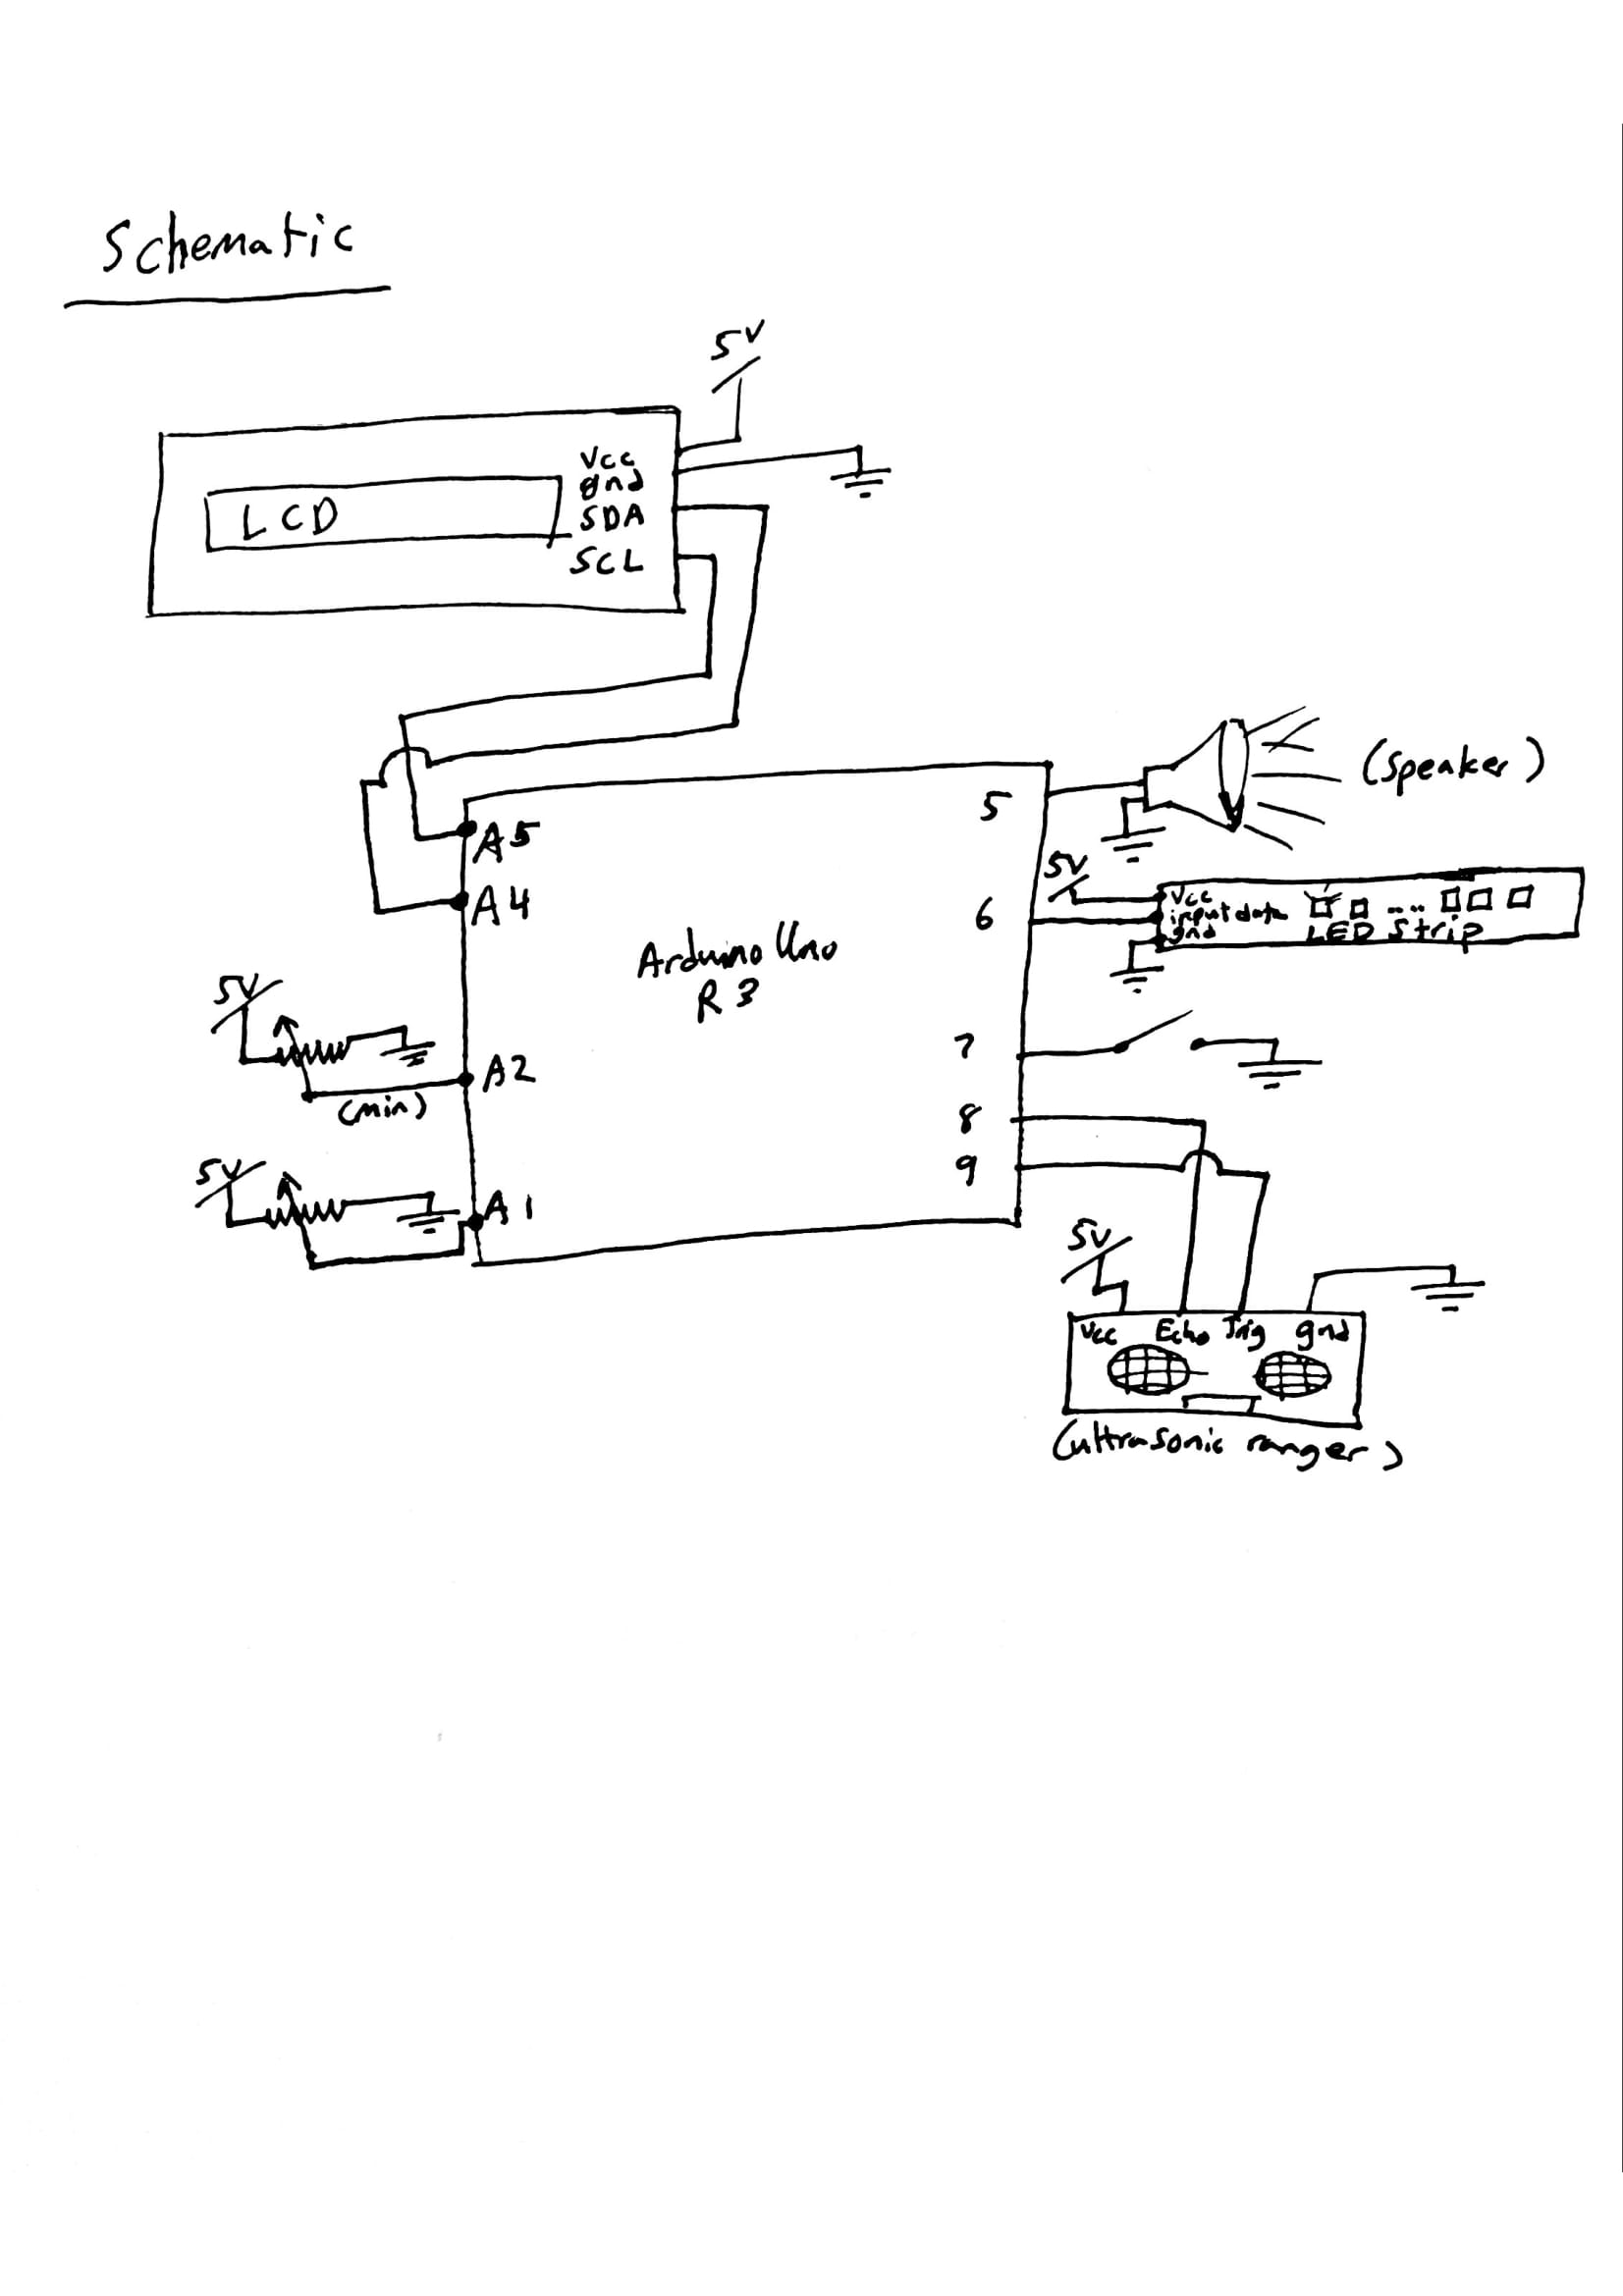 Schematic
5V
Vcc
gnd
LCD
SDA
SCL
5
(speaker)
A5
5V
A4
6
Vcc
input data
gnd
LED Strip
Arduino Uno
R3
5V
7
A2
(min)
8
9
5V
A1
5V
Vcc Echo Trig gnd
(ultrasonic ranger)